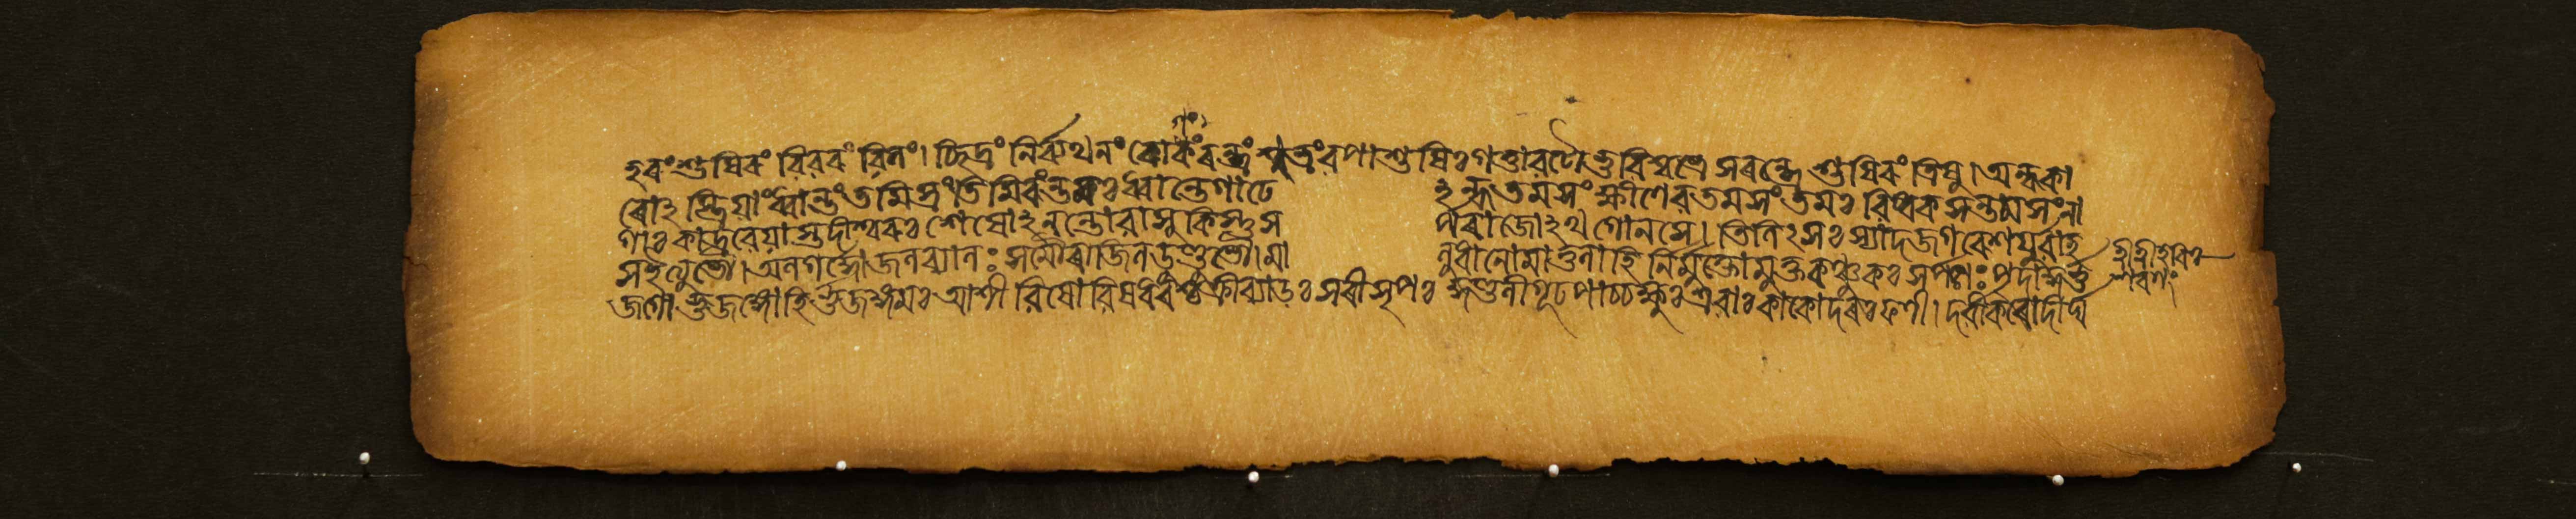 হৰং শুষিৰং বিবৰং বিলং। ছিদ্ৰং নিৰ্ব্যথনং ৰোকংৰন্ধ্ৰং শ্বভ্ৰংবপাশুষিঃগৰ্ত্তাবটৌভুবিশ্বভ্ৰে সৰন্ধ্ৰে শুষিৰং ত্ৰিষু। অন্ধকা
ৰোঽস্ত্ৰিয়াং ধ্বান্তং তমিস্ৰং তিমিৰংতমঃ ধ্বান্তেগাঢে ঽন্ধতমসং ক্ষীণেবতমসং তমঃ বিষ্বক সন্তমসং না
গাঃ কাদ্ৰবেয়াস্তদীশ্বৰঃ শেষোঽনন্তোবাসুকিস্তুস ৰ্পৰাজোঽথ গোনসে। তিলিৎসঃ স্যাদজগৰেশয়ুৰ্বাহ
সইত্যুভৌ। অলগৰ্দ্দোজলব্যালঃ সমৌৰাজিলডুণ্ডুভৌ।মা লুধানোমাতুলাহি নিৰ্মুক্তোমুক্তকঞ্চুকঃ সৰ্পঃ পৃদাকুৰ্ভু
জগো ভুজঙ্গোহিৰ্ভুজঙ্গমঃ আশীবিষোবিষধৰশ্চক্ৰীব্যাডঃ সৰীসৃপঃ কুণ্ডলীগূঢপাচ্চক্ষুঃশ্ৰবাঃ কাকোদৰঃ ফণী। দৰ্বীকৰোদীৰ্ঘ